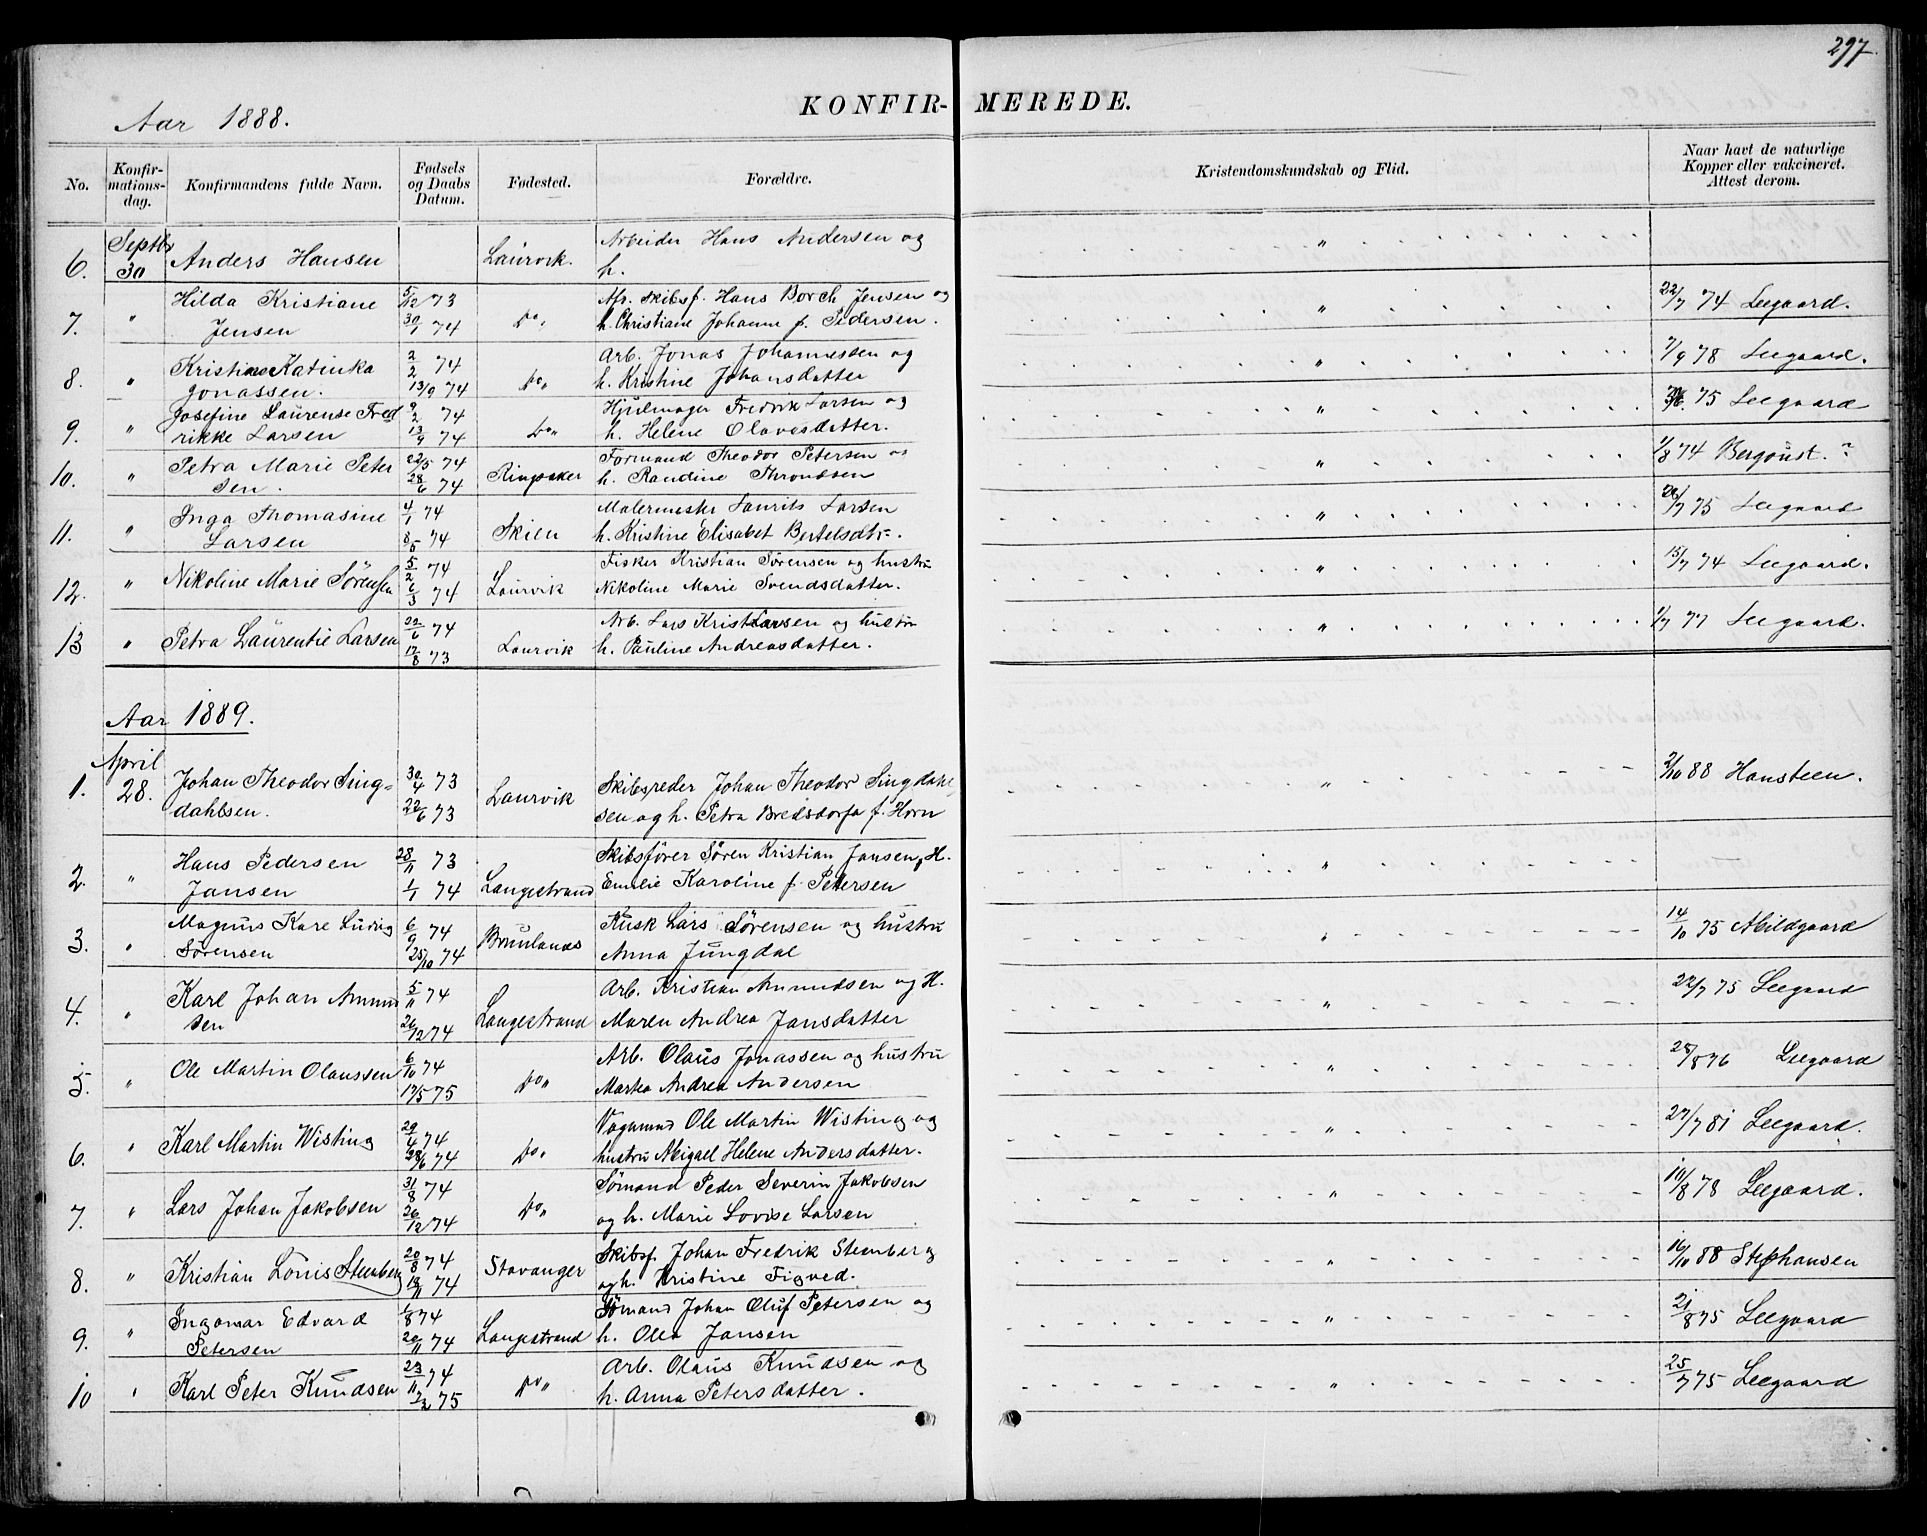 297.
KONFIR-MEREDE.
Aar 1888.
No. Konfirmations-dag. Konfirmandens fulde Navn. Fødsels og Daabs Datum. Fødested. Forældre. Kristendomskundskab og Flid. Naar havt de naturlige Kopper eller vakcineret. Attest derom.
6. Septbr 30 Anders Hansen Laurvik. Arbeider Hans Andersen og
h. "
7. " Hilda Kristiane 5/12 73 Afs. Skibsf. Hans Borch Jensen og
Jensen 30/1 74 Do, h. Christiane Johanne f. Pedersen. " 22/7 74 Leegaard.
8. " Kristine Katinka 2/2 74 Arb. Jonas Johannessen og
Jonassen. 13/9 74 Do, h. Kristine Johansdatter " 7/9 78 Leegaard.
9. " Josefine Laurense Fred 9/2 74 Hjulmager Fredrik Larsen og
rikke Larsen 13/9 74 Do, h. Helene Olavesdatter. " 75 Leegaard
10. " Petra Marie Peter 22/5 74 Formand Theodor Petersen og
sen. 28/6 74 Ringsaker h. Randine Throndsen " 1/8 74 Bergqust. ?
11. " Inga Thomasine 4/1 74 Malermester Laurits Larsen
Larsen 8/5 74 Skien h. Kristine Elisabet Bertelsdtr. " 26/7 75 Leegaard
12. " Nikoline Marie Sørensen 5/2 74 Fisker Kristian Sørensen og hustru
6/3 74 Laurvik Nikoline Marie Svendsdatter. " 15/7 74 Leegaard.
13 " Petra Laurentie Larsen 22/6 74 Arb. Lars Krist Larsen og hustru
17/8 73 Laurvik h. Pauline Andreasdatter. " 1/7 77 Leegaard.
Aar 1889.
1. April 28. Johan Theodor Sing- 30/4 73 Skibsreder Johan Theodor Singdahl
dahlsen. 22/6 73 Laurvik sen og h. Petra Bredsdorfa f. Horn " 2/10 88 Hansteen.
2. " Hans Pedersen 28/11 73 Skibsfører Søren Kristian Jansen, H.
Jansen 1/1 74 Langestrand Emilie Karoline f. Petersen "
3. " Magnus Kare Ludvig 6/9 74 Kusk Lars Sørensen og hustru
Sørensen 25/10 74 Brunlanes Anna Jungdal " 14/10 75 Abildgaard
4. " Karl Johan Amund 5/11 74 Arb. Kristian Amundsen og H.
sen 26/12 74 Langestrand Maren Andrea Jansdatter " 22/7 75 Leegaard
5. " Ole Martin Olaussen 6/10 74 Arb. Olaus Jonassen og hustru
17/5 75 Do, Martea Andrea Andersen " 25/8 76 Leegaard
6. " Karl Martin Wisting 29/4 74 Vognmand Ole Martin Wisting og
28/6 74 Do, hustru Abigael Helene Andersdatter. " 27/7 81 Leegaard.
7. " Lars Johan Jakobsen 31/8 74 Sømand Peder Severin Jakobsen
26/12 74 Do, og h. Marie Lovise Larsen " 10/8 78 Leegaard.
8. " Kristian Louis Stenberg 20/8 74 Skibsf. Johan Fredrik Stenberg
18/11 74 Stavanger og h. Kristine Figved. " 16/10 88 Stephansen
9. " Ingomar Edvard 1/8 74 Sømand Johan Oluf Petersen og
Petersen 20/11 74 Langestrand h. Olea Jansen " 21/8 75 Leegaard
10 " Karl Peter Knudsen 23/11 74 Arb. Olaus Knudsen og
2/2 75 Do, h. Anna Petersdatter. " 25/7 75 Leegaard